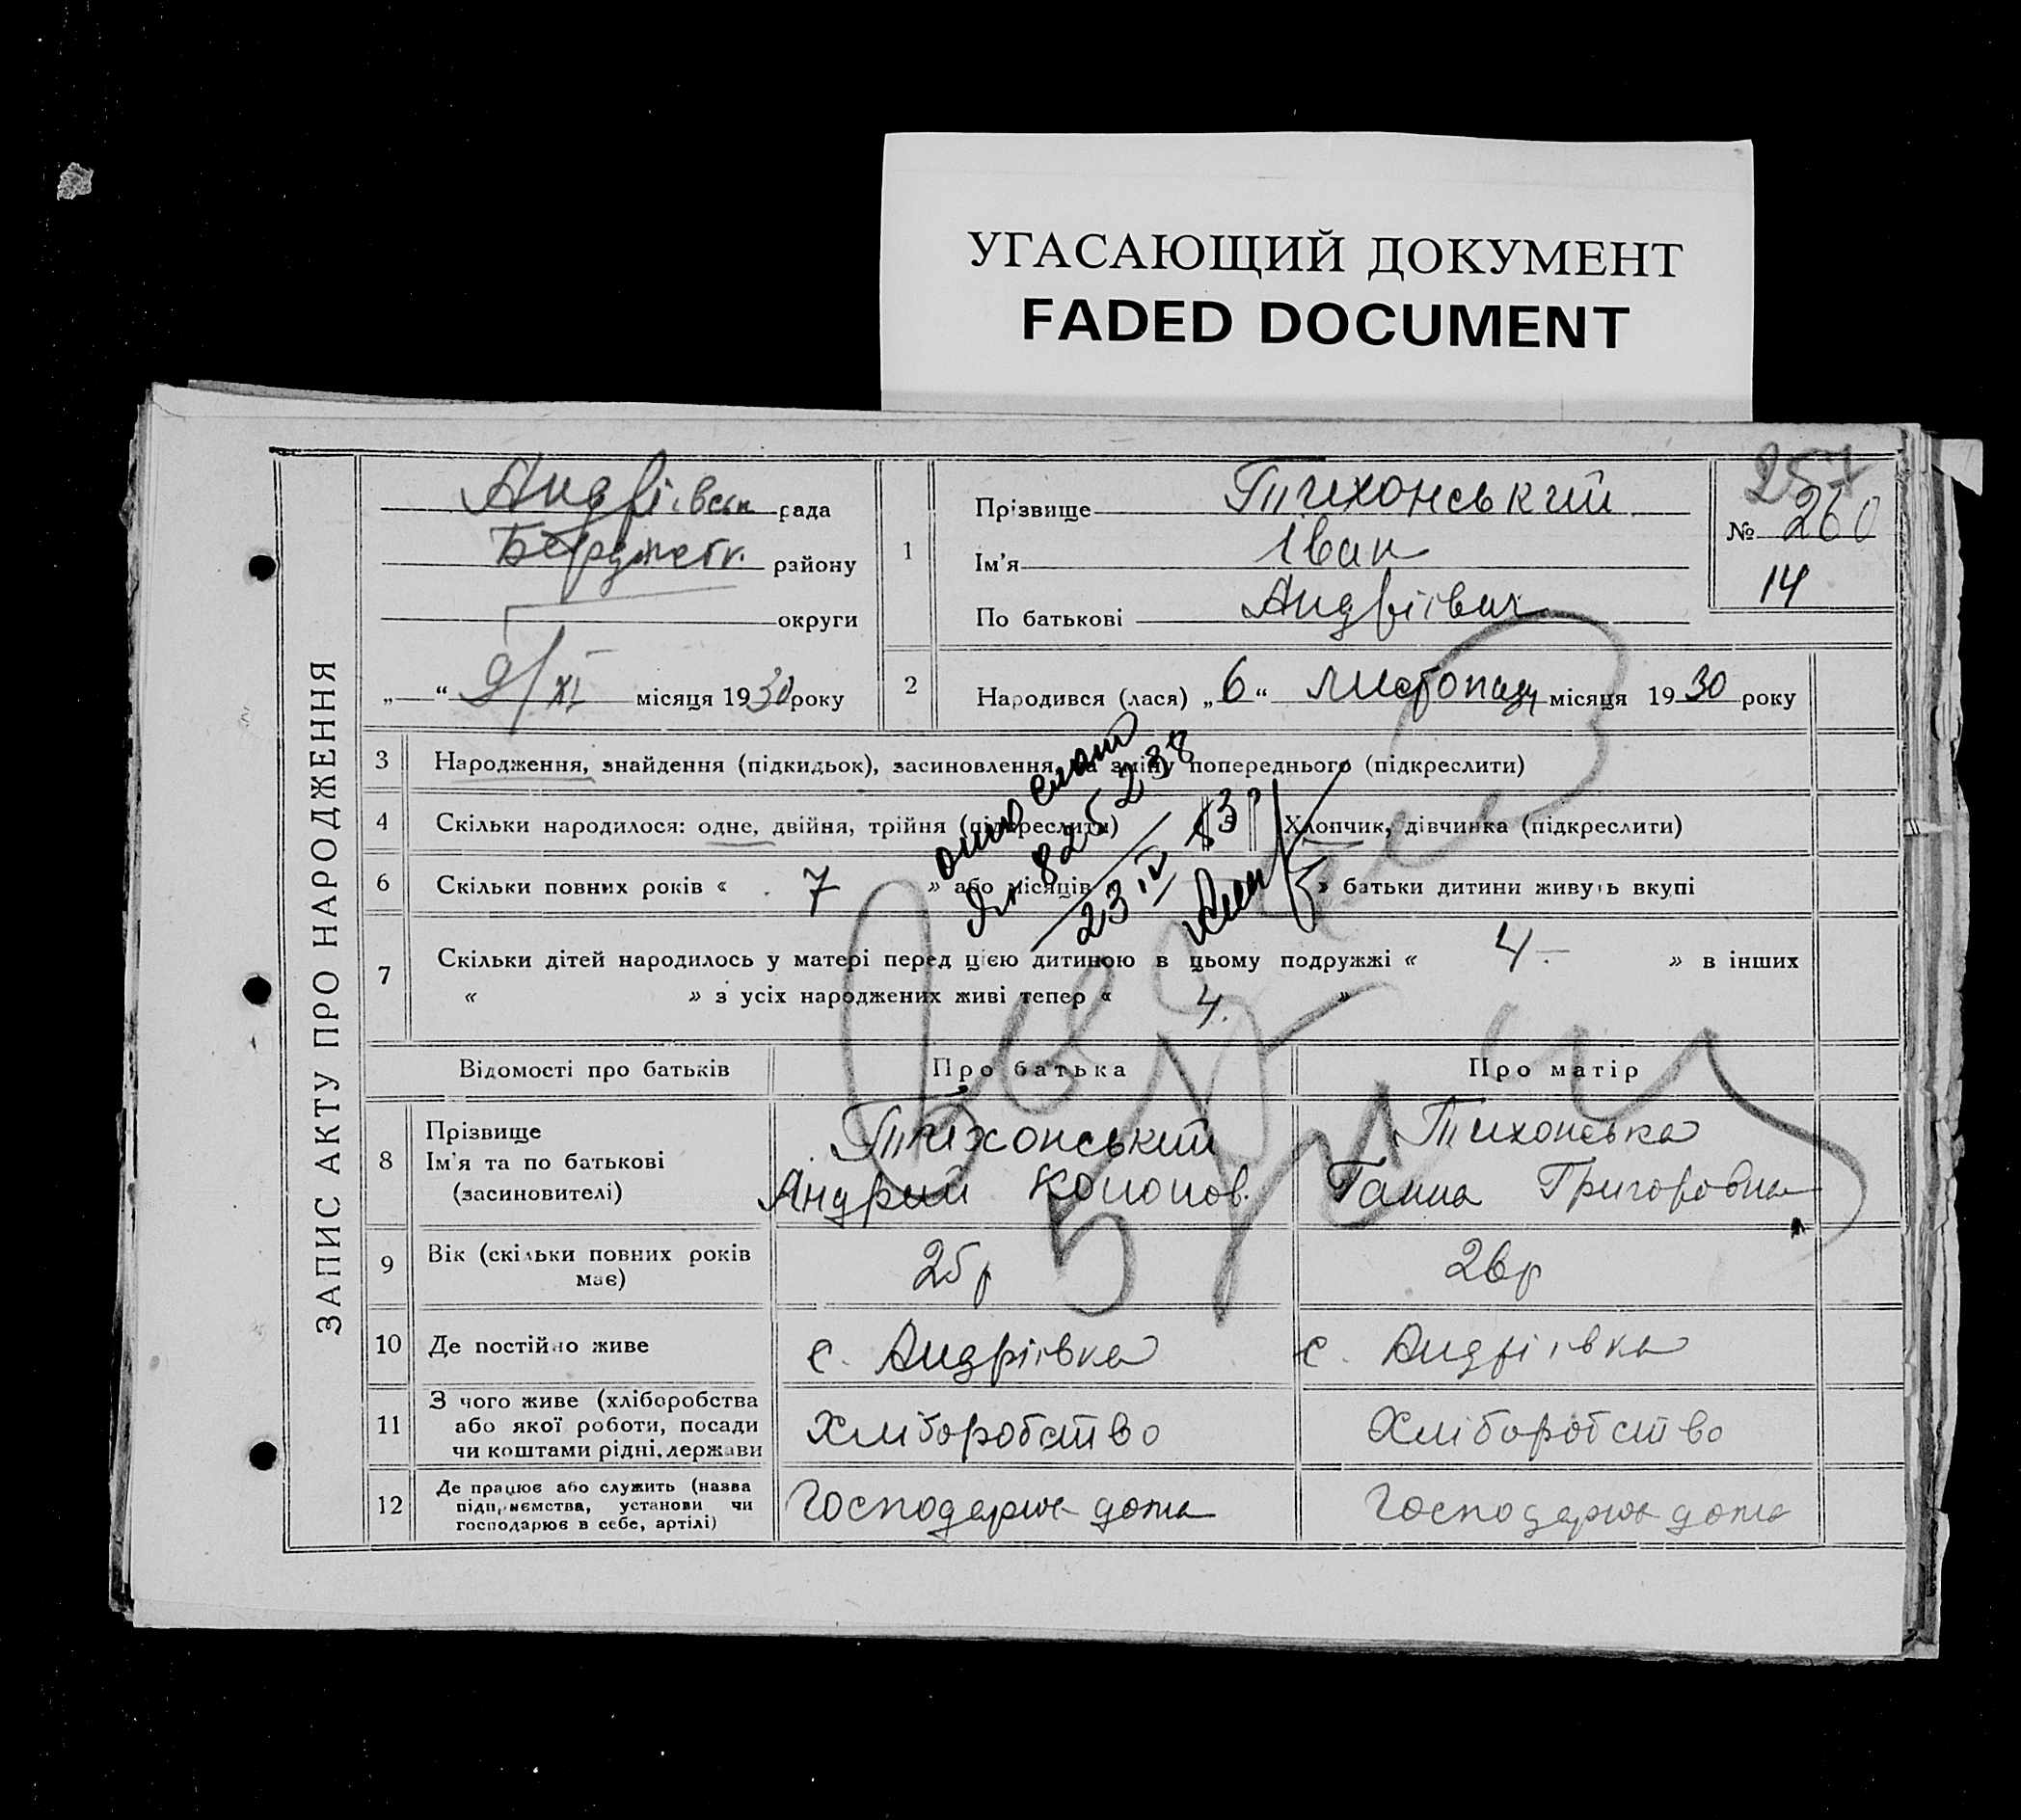 УГАСАЮЩИЙ ДОКУМЕНТ
FADED DOCUMENT
ЗАПИС АКТУ ПРО НАРОДЖЕННЯ
Андріївськ рада
району
округи
„ “ 9/XI місяця 1930 року
1
Прізвище Тихонський
Ім'я Іван
По батькові Андріївич
257
№ 260
14
2
Народився (лася) „6“ листопаду місяця 1930 року
3 Народження, знайдення (підкидьок), засиновлення, на зміну попереднього (підкреслити)
4 Скільки народилося: одне, двійня, трійня (підкреслити) Хлопчик, дівчинка (підкреслити)
825238
23 IV
6 Скільки повних років « 7 » або місяців » батьки дитини живуть вкупі
7 Скільки дітей народилось у матері перед цією дитиною в цьому подружжі « 4 » в інших
« » з усіх народжених живі тепер « 4. »
Відомості про батьків Про батька Про матір
8 Прізвище
Ім'я та по батькові
(засиновителі)
Тихонський
Андрій Кононов.
Тихонська
Ганна Григоровна
9 Вік (скільки повних років
має)
25р
26р
10 Де постійно живе с. Андріївка с. Андріївка
11 З чого живе (хліборобства
або якої роботи, посади
чи коштами рідні, держави
Хліборобство Хліборобство
12 Де працює або служить (назва
підприємства, установи чи
господарює в себе, артілі)
Господарює дома Господарює дома